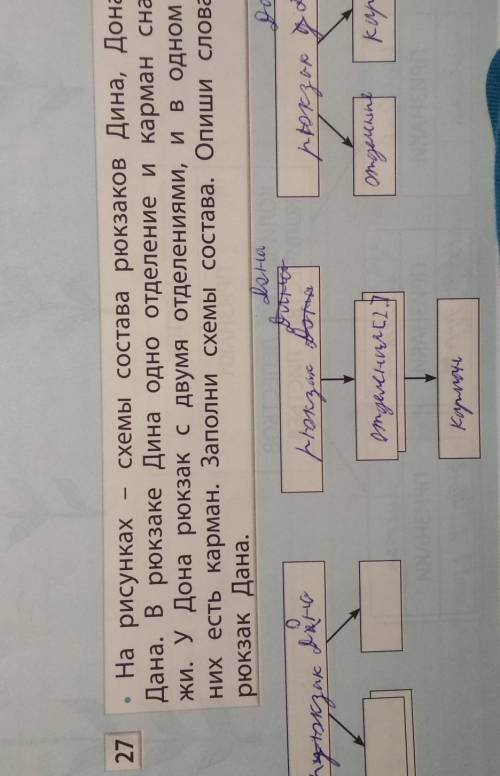 27
• На рисунках – схемы состава рюкзаков Дина, Дона
Дана. В рюкзаке Дина одно отделение и карман сна
жи. У Дона рюкзак с двумя отделениями, и в одном
них есть карман. Заполни схемы состава. Опиши слова
рюкзак Дана.
рюкзак Дана
Дона
рюкзак
отделения[2]
карман
рюкзак
отделение
кар